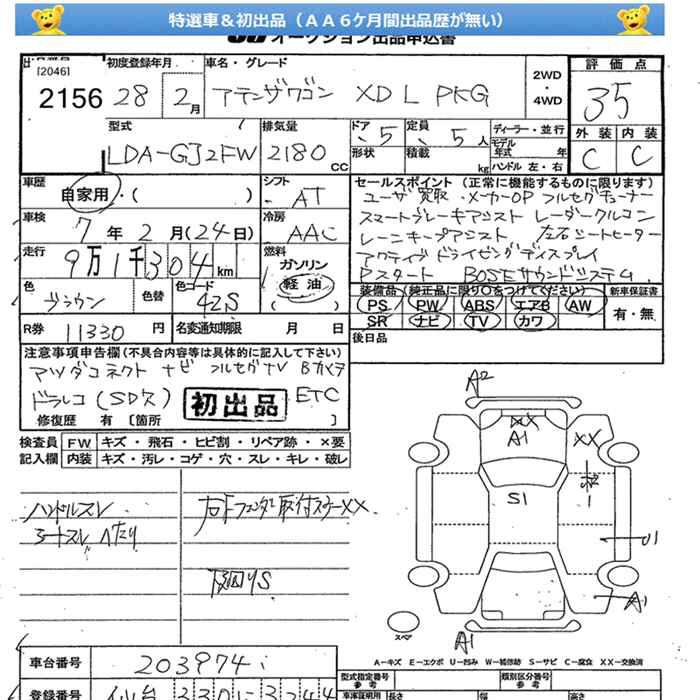 特選車＆初出品（ＡＡ６ケ月間出品歴が無い）
オークション出品申込書
[2046]
初度登録年月
車名・グレード
2WD
・
4WD
評価点
2156
28 2月
アテンザワゴン XD L PKG
35
型式
排気量
ドア
定員
ディーラー・並行
外装
内装
LDA-GJ2FW
2180 CC
5
5人
モデル年式 年
C
C
形状
積載
kg
ハンドル 左・右
車歴
自家用・( )
シフト
AT
セールスポイント（正常に機能するものに限ります）
ユーザ買取 ・メーカーOP フルセグチューナー
スマートブレーキアシスト レーダークルコン
レーンキープアシスト 左右シートヒーター
アクティブドライビングディスプレイ
Pスタート BOSEサウンドシステム
車検
7年2月(24日)
冷房
AAC
走行
9万1千304km
燃料
ガソリン
軽油
( )
色
ブラウン
色替
色コード
42S
装備品（純正品に限り○をつけてください）
新車保証書
PS PW ABS エアB AW
SR ナビ TV カワ
有・無
R券
11330円
名変通知期限 月 日
後日品
注意事項申告欄（不具合内容等は具体的に記入して下さい）
マツダコネクト ナビ フルセグTV Bカメラ
ドラレコ(SD欠) 初出品 ETC
修復歴 有〔箇所 〕
検査員記入欄
FW キズ・飛石・ヒビ割・リペア跡・×要
内装 キズ・汚レ・コゲ・穴・スレ・キレ・破レ
ハンドルスレ
シートスレ ヘタリ
右Fフェンダー取付ステーXX
下回りS
A2
XX
A1
XX
S1
U1
A1
A1
スペア
A−キズ E−エクボ U−凹み W−補修跡 S−サビ C−腐食 XX−交換済
車台番号
203974
登録番号
仙台 330
型式指定番号
参考
類別区分番号
参考
車庫証明用
長さ
幅
高さ